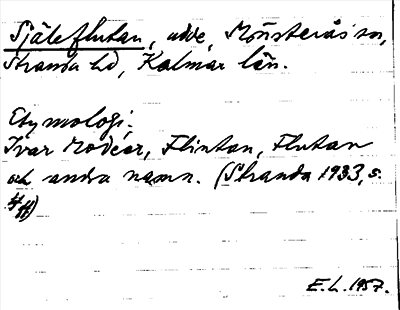 Själeflutan, udde, Mönsterås sn,
Stranda hd, Kalmar län.
Etymologi.
Ivar Modéer, Flintan, Flutan
och andra namn. (Stranda 1933, s.
4 ff)
E. L. 1957.